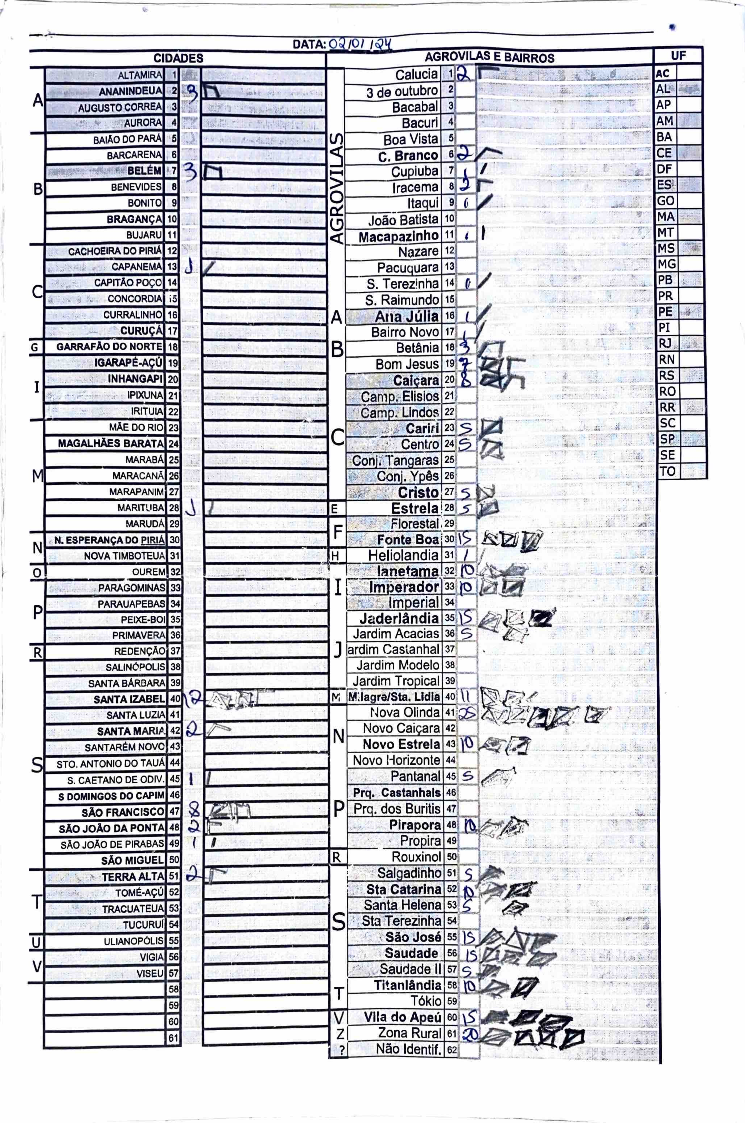 DATA: 02/01/24
CIDADES
A
ALTAMIRA 1
ANANINDEUA 2 3
AUGUSTO CORREA 3
AURORA 4
B
BAIÃO DO PARÁ 5
BARCARENA 6
BELÉM 7 3
BENEVIDES 8
BONITO 9
BRAGANÇA 10
BUJARU 11
C
CACHOEIRA DO PIRIÁ 12
CAPANEMA 13 1
CAPITÃO POÇO 14
CONCORDIA 15
CURRALINHO 16
CURUÇÁ 17
G
GARRAFÃO DO NORTE 18
I
IGARAPÉ-AÇÚ 19
INHANGAPI 20
IPIXUNA 21
IRITUIA 22
M
MÃE DO RIO 23
MAGALHÃES BARATA 24
MARABÁ 25
MARACANÃ 26
MARAPANIM 27
MARITUBA 28 1
MARUDÁ 29
N
N. ESPERANÇA DO PIRIÁ 30
NOVA TIMBOTEUA 31
O
OUREM 32
P
PARAGOMINAS 33
PARAUAPEBAS 34
PEIXE-BOI 35
PRIMAVERA 36
R
REDENÇÃO 37
S
SALINÓPOLIS 38
SANTA BÁRBARA 39
SANTA IZABEL 40 12
SANTA LUZIA 41
SANTA MARIA 42 2
SANTARÉM NOVO 43
STO. ANTONIO DO TAUÁ 44
S. CAETANO DE ODIV. 45 1
S DOMINGOS DO CAPIM 46
SÃO FRANCISCO 47 8
SÃO JOÃO DA PONTA 48 2
SÃO JOÃO DE PIRABAS 49 1
SÃO MIGUEL 50
T
TERRA ALTA 51 2
TOMÉ-AÇÚ 52
TRACUATEUA 53
TUCURUÍ 54
U
ULIANOPÓLIS 55
V
VIGIA 56
VISEU 57
58
59
60
61
AGROVILAS E BAIRROS
AGROVILAS
Calucia 1 2
3 de outubro 2
Bacabal 3
Bacuri 4
Boa Vista 5
C. Branco 6 2
Cupiuba 7 1
Iracema 8 2
Itaqui 9 1
João Batista 10
Macapazinho 11 1
Nazare 12
Pacuquara 13
S. Terezinha 14
S. Raimundo 15
A
Ana Júlia 16 1
B
Bairro Novo 17
Betânia 18 3
Bom Jesus 19 7
C
Caiçara 20 8
Camp. Elisios 21
Camp. Lindos 22
Cariri 23 5
Centro 24 5
Conj. Tangaras 25
Conj. Ypês 26
Cristo 27 5
E
Estrela 28 5
F
Florestal 29
Fonte Boa 30 15
H
Heliolandia 31 1
I
Ianetama 32 10
Imperador 33 10
Imperial 34
J
Jaderlândia 35 15
Jardim Acacias 36 5
ardim Castanhal 37
Jardim Modelo 38
Jardim Tropical 39
M
Milagre/Sta. Lidia 40 11
N
Nova Olinda 41 25
Nova Caiçara 42
Novo Estrela 43 10
Novo Horizonte 44
P
Pantanal 45 5
Prq. Castanhals 46
Prq. dos Buritis 47
Pirapora 48 10
Propira 49
R
Rouxinol 50
S
Salgadinho 51 5
Sta Catarina 52 10
Santa Helena 53 5
Sta Terezinha 54
São José 55 15
Saudade 56 15
Saudade II 57 5
T
Titanlândia 58 10
Tókio 59
V
Vila do Apeú 60 15
Z
Zona Rural 61 20
?
Não Identif. 62
UF
AC
AL
AP
AM
BA
CE
DF
ES
GO
MA
MT
MS
MG
PB
PR
PE
PI
RJ
RN
RS
RO
RR
SC
SP
SE
TO